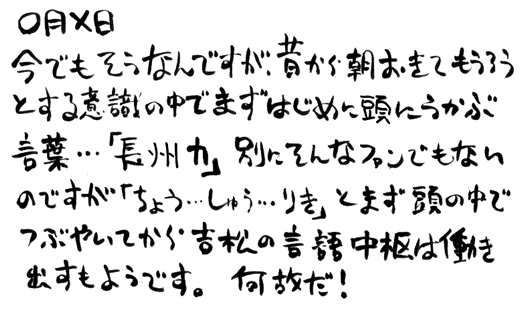 〇月×日
今でもそうなんですが、昔から朝おきてもうろう
とする意識の中でまずはじめに頭にうかぶ
言葉…「長州力」別にそんなファンでもない
のですが「ちょう…しゅう…りき」とまず頭の中で
つぶやいてから吉松の言語中枢は働き
出すもようです。何故だ!